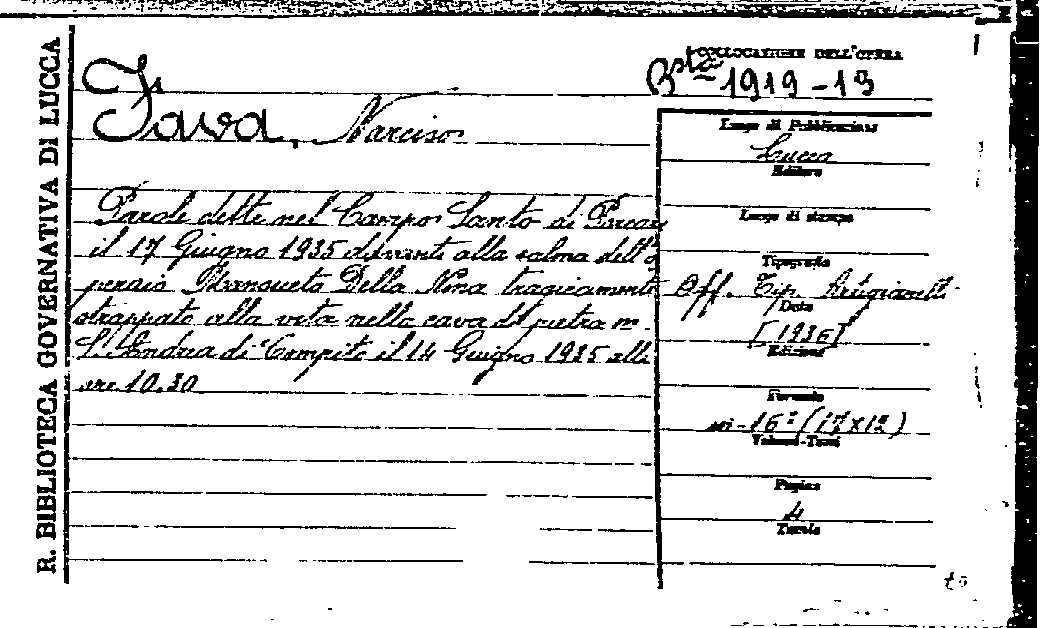 R. BIBLIOTECA GOVERNATIVA DI LUCCA
COLLOCAZIONE DELL'OPERA
Bsta 1919-13
Fava, Narciso
Parole dette nel Campo Santo di Porcari
il 17 Giugno 1935 davanti alla salma dell'o
peraio Mansueto Della Nina tragicamente
strappato alla vita nella cava di pietra in
S. Andrea di Compito il 14 Giugno 1935 alle
ore 10.30
Luogo di Pubblicazione
Lucca
Editore
Luogo di stampa
Tipografia
Off. Tip. Artigianelli
Data
[1936]
Edizione
Formato
in-16° (17x12)
Volumi-Tomi
Pagine
4
Tavole